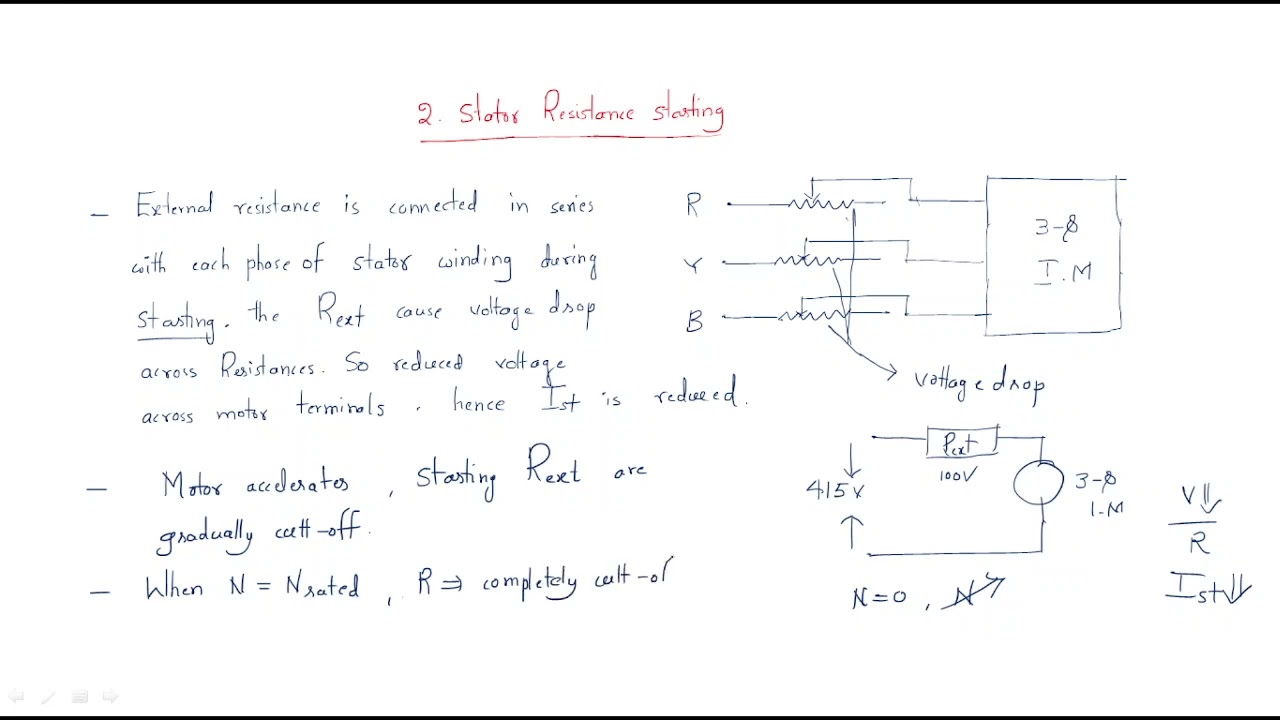 2. Stator Resistance starting
– External resistance is connected in series
with each phase of stator winding during
starting. the Rext cause voltage drop
across Resistances. So reduced voltage
across motor terminals. hence Ist is reduced.
– Motor accelerates, starting Rext are
gradually cutt-off.
– When N = Nrated, R ⇒ completely cutt-of
R
Y
B
3-φ
I.M
voltage drop
Rext
100V
415V
3-φ
I.M
N=0, N
V↓↓
R
Ist↓↓